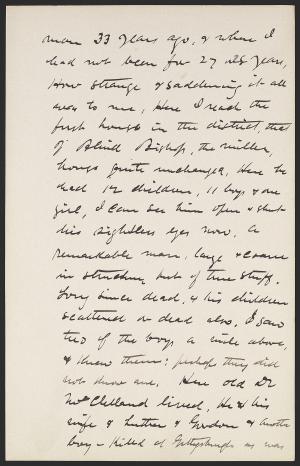 man 33 years ago, & where I
had not been for 27 or 28 years,
How strange & saddening it all
was to me, Here I reach the
first house in the district, that
of Blind Bishop, the miller,
house quite unchanged, Here he
had 12 children, 11 boys & one
girl, I can see him open & shut
his sightless eyes now, a
remarkable man, large & coarse
in structure but of true stuff.
Long since dead, & his children
scattered or dead also, I saw
two of the boys a mile above,
& knew them; perhaps they did
not know me. Here old Dr
McClelland lived, He & his
wife & Luther & Gordon & another
boy - killed at Gettysburgh as was